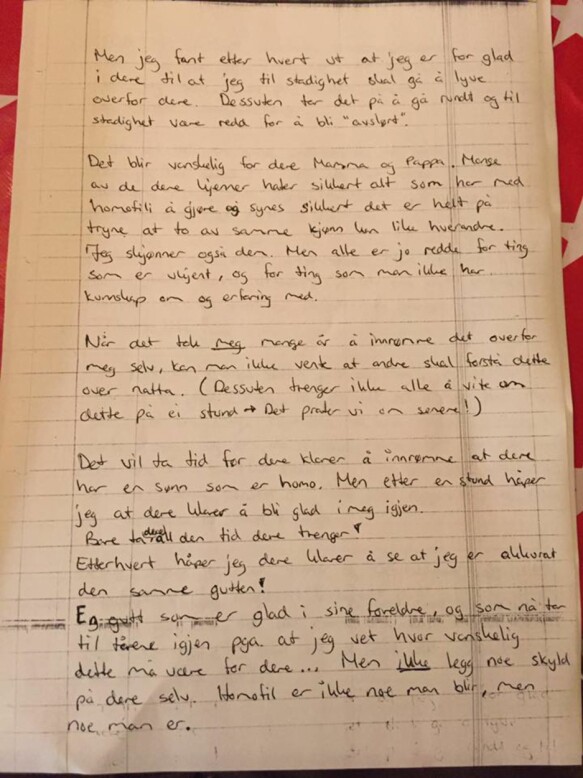 Men jeg fant etter hvert ut at jeg er for glad
i dere til at jeg til stadighet skal gå å lyve
overfor dere. Dessuten tar det på å gå rundt og til
stadighet være redd for å bli "avslørt".
Det blir vanskelig for dere Mamma og Pappa. Mange
av de dere kjenner hater sikkert alt som har med
homofili å gjøre og synes sikkert det er helt på
tryne at to av samme kjønn kan like hverandre.
Jeg skjønner også den. Men alle er jo redde for ting
som er ukjent, og for ting som man ikke har
kunnskap om og erfaring med.
Når det tok meg mange år å innrømme det overfor
meg selv, kan man ikke vente at andre skal forstå dette
over natta. (Dessuten trenger ikke alle å vite om
dette på ei stund → Det prater vi om senere!)
Det vil ta tid før dere klarer å innrømme at dere
har en sønn som er homo. Men etter en stund håper
jeg at dere klarer å bli glad i meg igjen.
Bare ta dere all den tid dere trenger!
Etterhvert håper jeg dere klarer å se at jeg er akkurat
den samme gutten!
En gutt som er glad i sine foreldre, og som nå tar
til tårene igjen pga. at jeg vet hvor vanskelig
dette må være for dere... Men ikke legg noe skyld
på dere selv. Homofil er ikke noe man blir, men
noe man er.